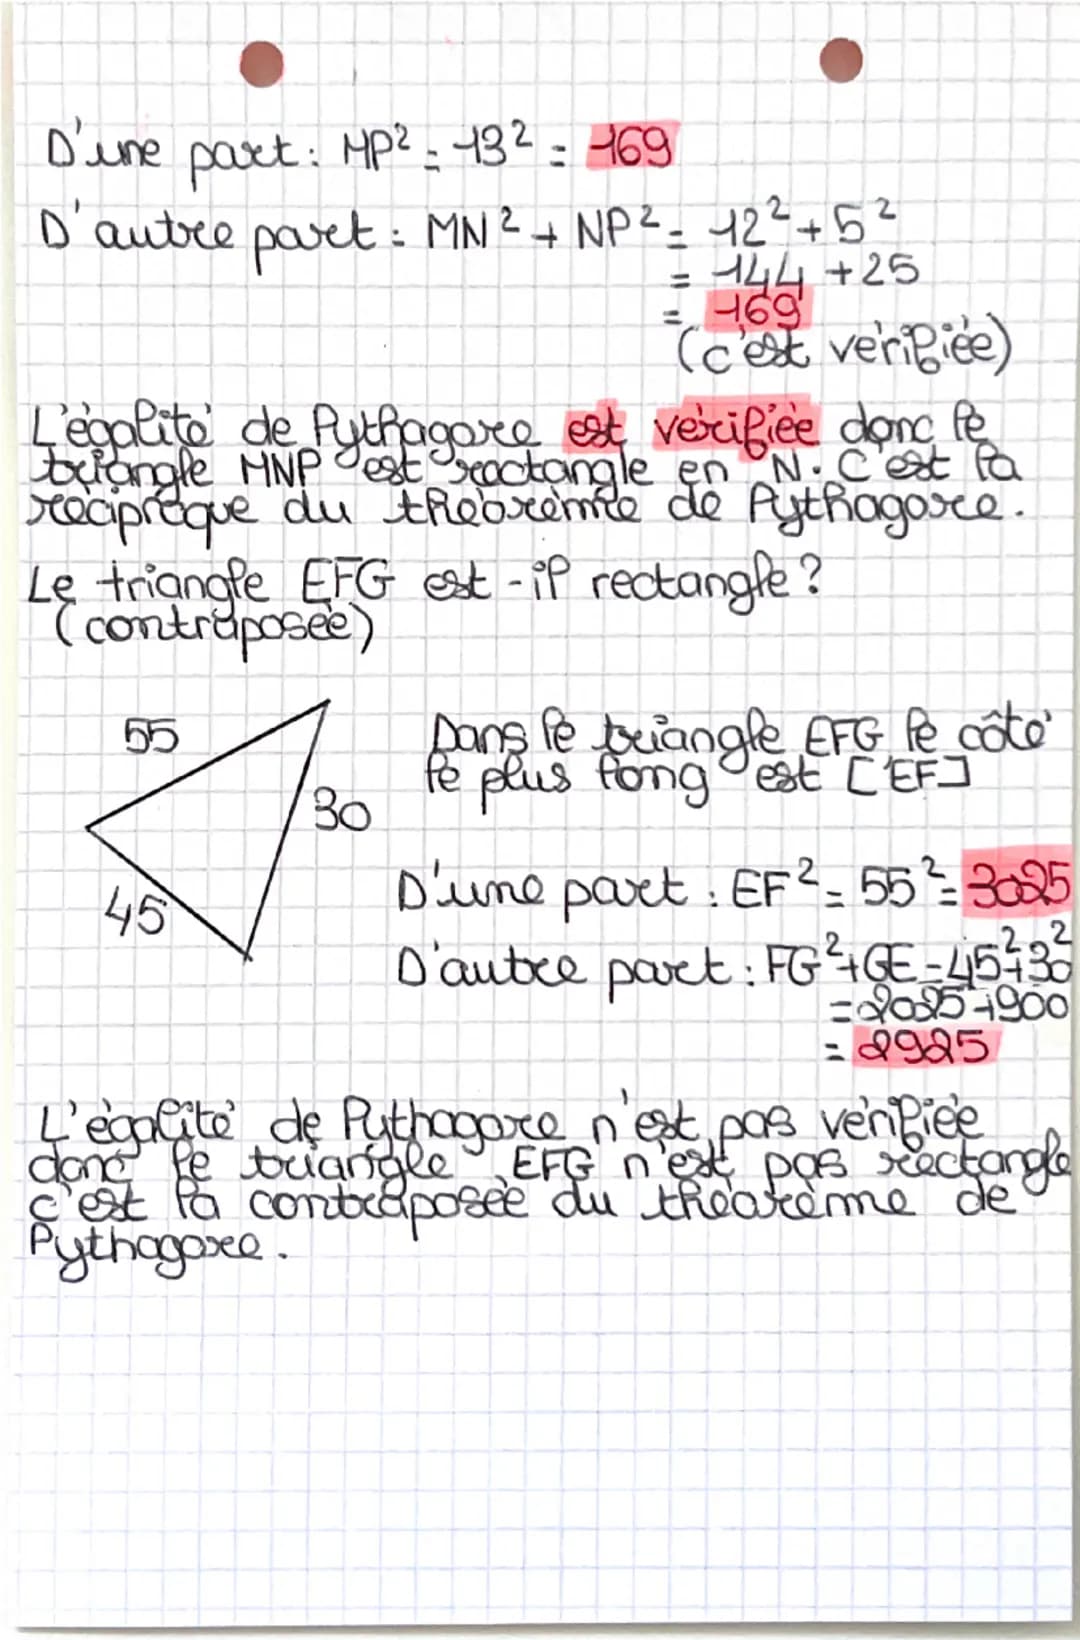 D'une part : MP² = 13² = 169
D'autre part : MN² + NP² = 12² + 5²
= 144 + 25
= 169
(c'est vérifiée)
L'égalité de Pythagore est vérifiée donc le
triangle MNP est rectangle en N. C'est la
réciproque du théorème de Pythagore.
Le triangle EFG est-il rectangle ?
(contraposée)
55
30
45
Dans le triangle EFG le côté
le plus long est [EF]
D'une part : EF² = 55² = 3025
D'autre part : FG² + GE = 45² + 30²
= 2025 + 900
= 2925
L'égalité de Pythagore n'est pas vérifiée
donc le triangle EFG n'est pas rectangle
c'est la contraposée du théorème de
Pythagore.